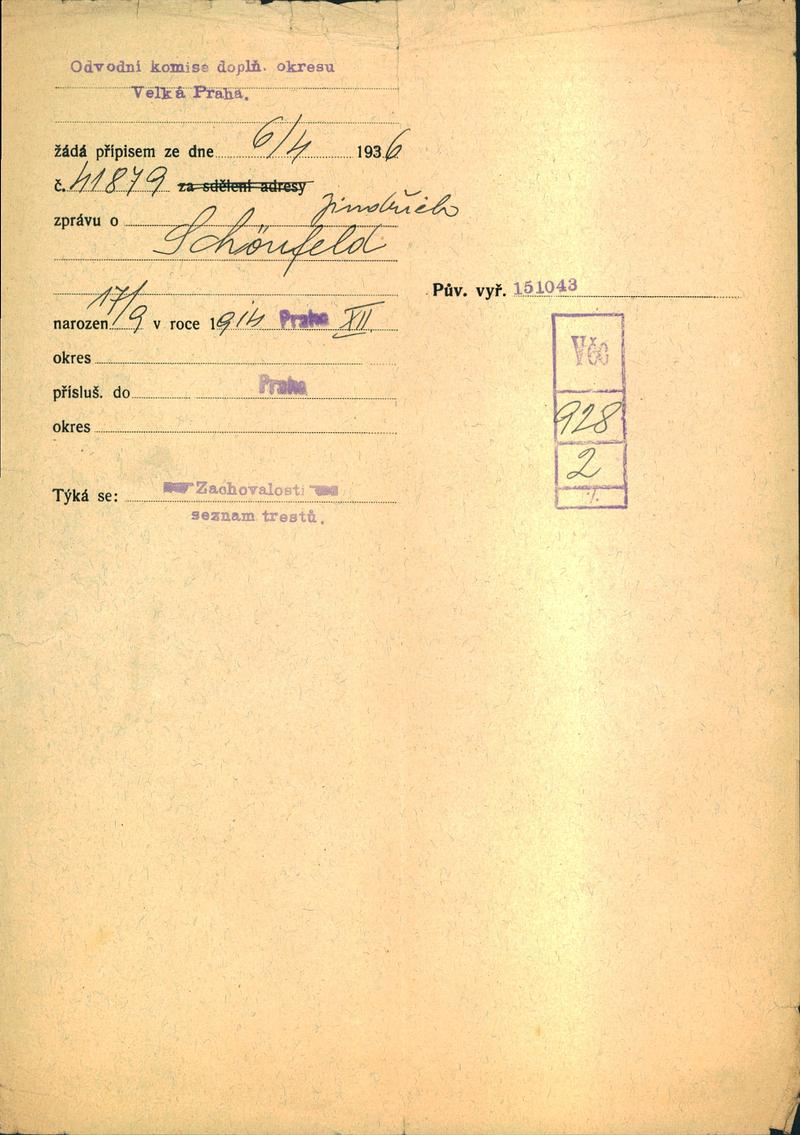 Odvodní komise doplň. okresu
Velká Praha.
žádá přípisem ze dne 6/4 1936
č. 41879 za sdělení adresy
zprávu o Jindřich
Schönfeld
Pův. vyř. 151043
narozen 17/9 v roce 1914 Praha XII.
okres
přísluš. do Praha
okres
Věc
928
2
Týká se: Zachovalosti
seznam trestů.